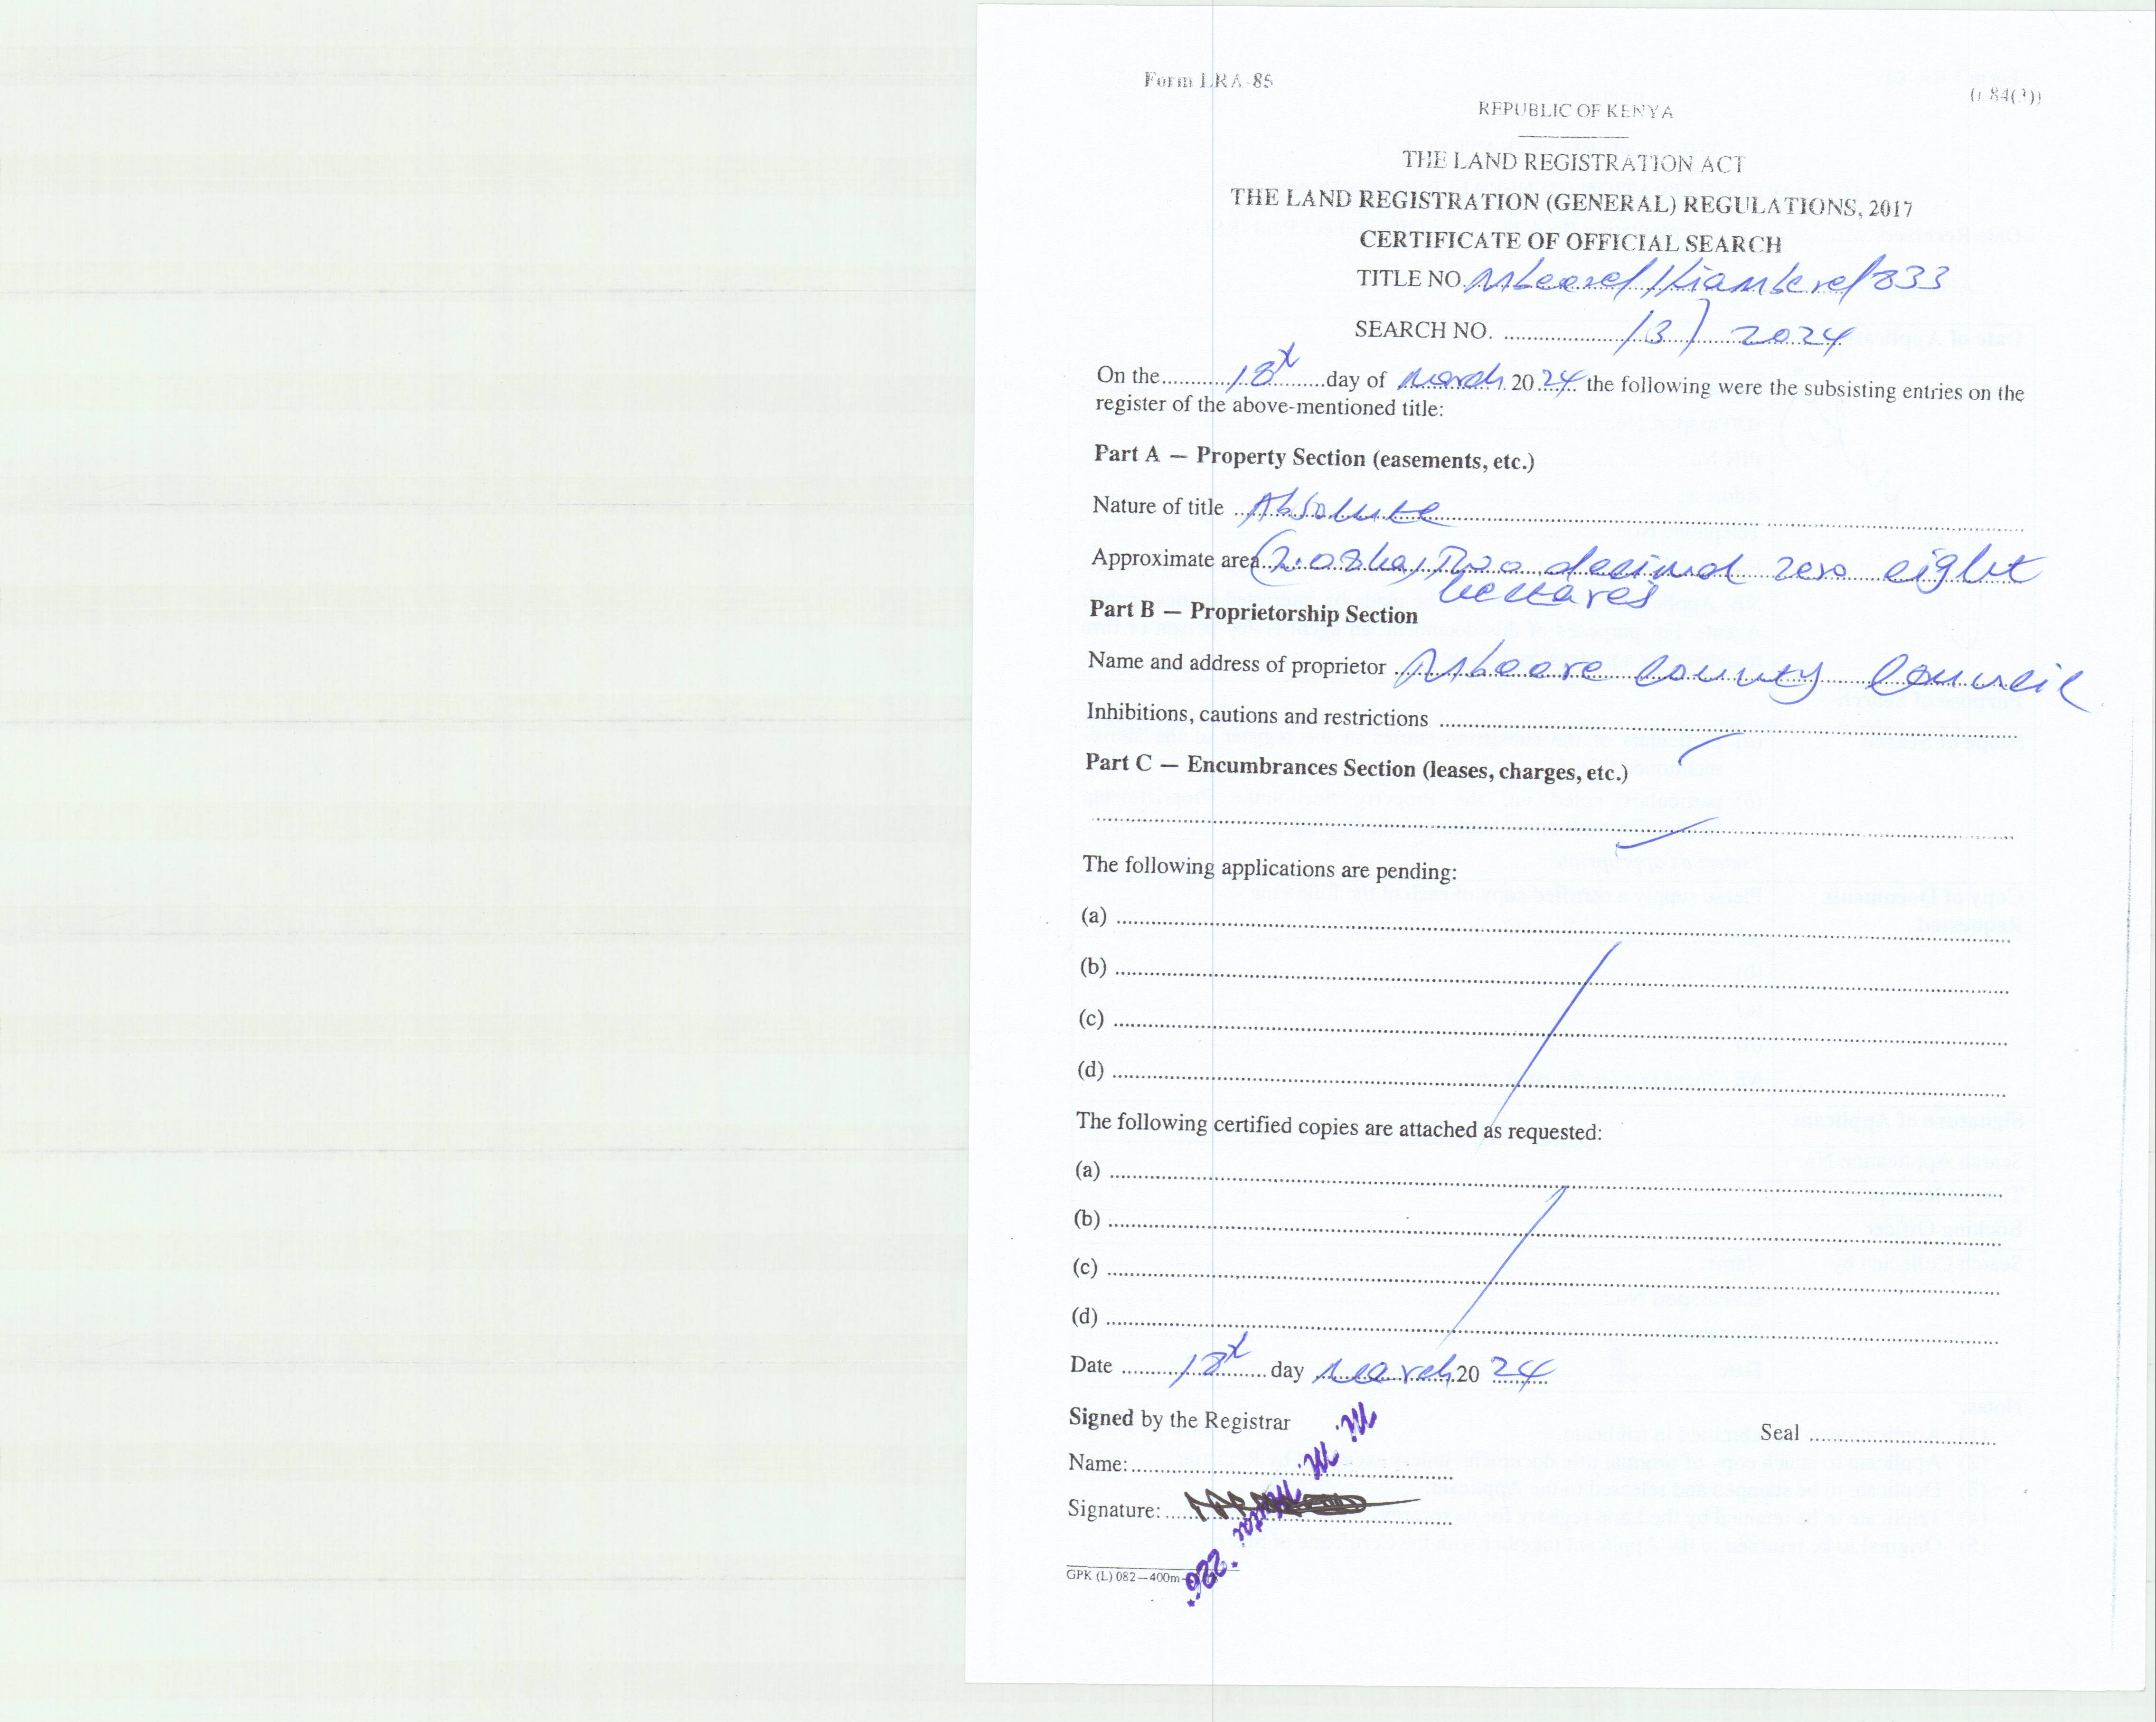 Form LRA-85
(r 84(3))
REPUBLIC OF KENYA
THE LAND REGISTRATION ACT
THE LAND REGISTRATION (GENERAL) REGULATIONS, 2017
CERTIFICATE OF OFFICIAL SEARCH
TITLE NO. Mbeere/Kiambere/833
SEARCH NO. 13/2024
On the 18th day of March 2024 the following were the subsisting entries on the
register of the above-mentioned title:
Part A — Property Section (easements, etc.)
Nature of title Absolute
Approximate area (2.08ha) Two decimal zero eight
hectares
Part B — Proprietorship Section
Name and address of proprietor Mbeere County Council
Inhibitions, cautions and restrictions
Part C — Encumbrances Section (leases, charges, etc.)
The following applications are pending:
(a)
(b)
(c)
(d)
The following certified copies are attached as requested:
(a)
(b)
(c)
(d)
Date 18th day March 2024
Signed by the Registrar
Seal
Name:
Signature:
*226*
GPK (L) 082—400m-